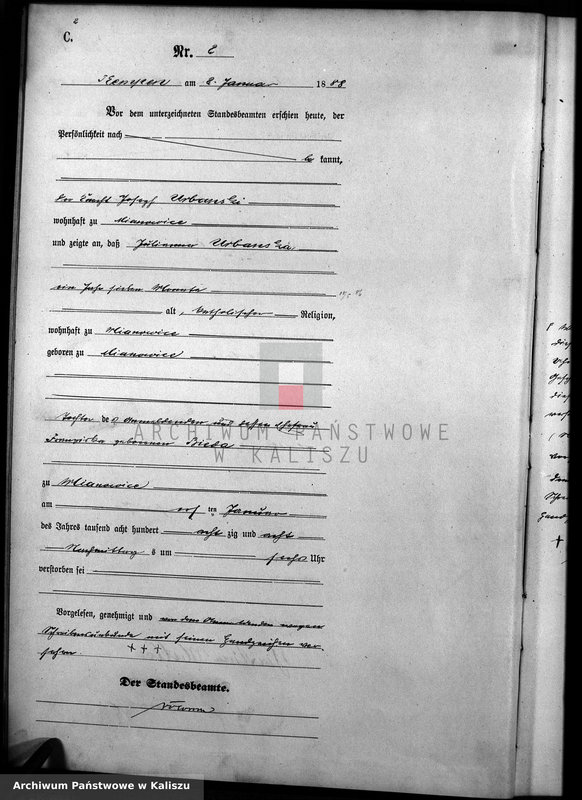 C.
2
Nr. 2
Kempen am 2. Januar 1888
Vor dem unterzeichneten Standesbeamten erschien heute, der
Persönlichkeit nach
be kannt,
der Knecht Joseph Urbanski
wohnhaft zu Mianowice
und zeigte an, daß Julianna Urbanska,
ein Jahr sieben Monate
alt, katholischer Religion,
wohnhaft zu Mianowice
geboren zu Mianowice
Tochter des Anmeldenden und dessen Ehefrau
Franziska geborenen Bieda
zu Mianowice
am ten Januar
des Jahres tausend acht hundert acht zig und acht
Nachmittags um sechs Uhr
verstorben sei
Vorgelesen, genehmigt und von dem Anmeldenden wegen
Schreibensunkunde mit seinem Handzeichen ver-
sehen. +++
Der Standesbeamte.
ARCHIWUM PAŃSTWOWE
W KALISZU
Archiwum Państwowe w Kaliszu